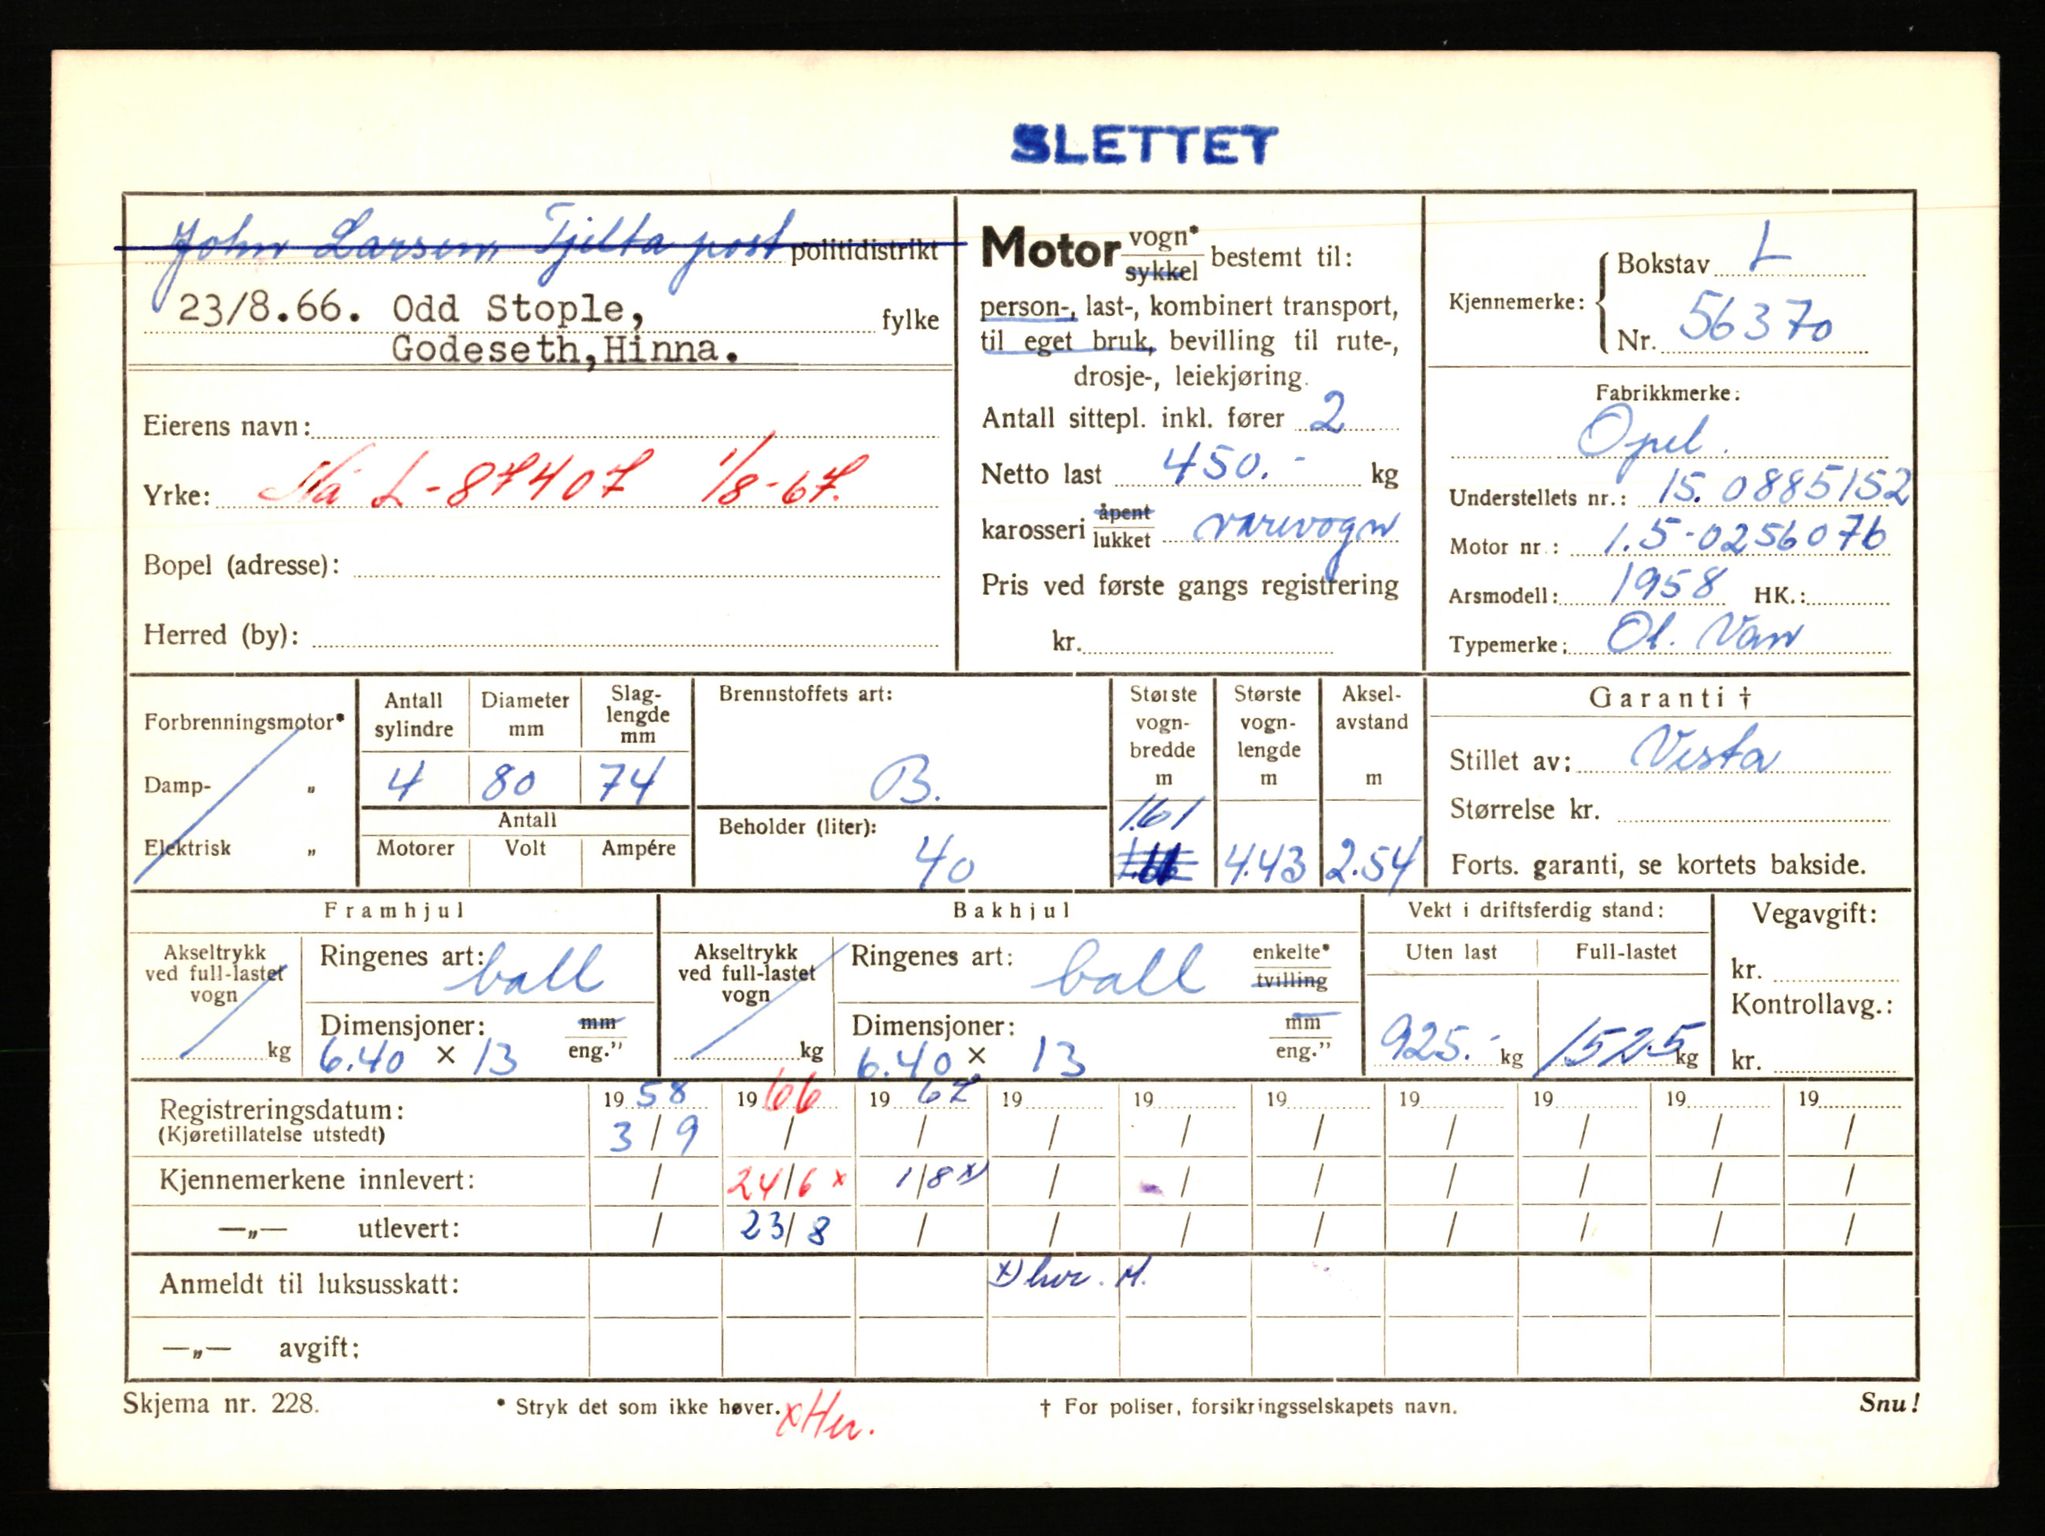 SLETTET
John Larsen, Tjelta post politidistrikt
23/8.66. Odd Stople, fylke
Godeseth, Hinna.
Eierens navn:
Yrke: Nå L-87407 1/8-67.
Bopel (adresse):
Herred (by):
Motor vogn* sykkel bestemt til:
person-, last-, kombinert transport,
til eget bruk, bevilling til rute-,
drosje-, leiekjøring.
Antall sittepl. inkl. fører 2
Netto last 450.- kg
karosseri åpent lukket varevogn
Pris ved første gangs registrering
kr.
Kjennemerke: Bokstav L
Nr. 56370
Fabrikkmerke:
Opel.
Understellets nr.: 15.0885152
Motor nr.: 1.5-0256076
Arsmodell: 1958 HK.:
Typemerke: Ol. Van
Forbrenningsmotor*
Damp- „
Elektrisk „
Antall sylindre Diameter mm Slag-lengde mm
4 80 74
Antall
Motorer Volt Ampére
Brennstoffets art:
B.
Beholder (liter):
40
Største vogn-bredde m Største vogn-lengde m Aksel-avstand m
1.61
4.43 2.54
Garanti †
Stillet av: Vesta
Størrelse kr.
Forts. garanti, se kortets bakside.
Framhjul
Akseltrykk ved full-lastet vogn kg
Ringenes art: ball
Dimensjoner: mm eng.”
6.40 × 13
Bakhjul
Akseltrykk ved full-lastet vogn kg
Ringenes art: ball enkelte* tvilling
Dimensjoner: mm eng.”
6.40 × 13
Vekt i driftsferdig stand:
Uten last Full-lastet
925.- kg 1525 kg
Vegavgift:
kr.
Kontrollavg.:
kr.
Registreringsdatum: 19 58 19 66 19 67 19 19 19 19 19 19 19
(Kjøretillatelse utstedt) 3/9 / / / / / / / / /
Kjennemerkene innlevert: / 24/6 x 1/8 x) / / / / / / /
—„— utlevert: / 23/8 / / / / / / / /
Anmeldt til luksusskatt: x) hvr. M.
—„— avgift:
Skjema nr. 228. * Stryk det som ikke høver. † For poliser, forsikringsselskapets navn. Snu!